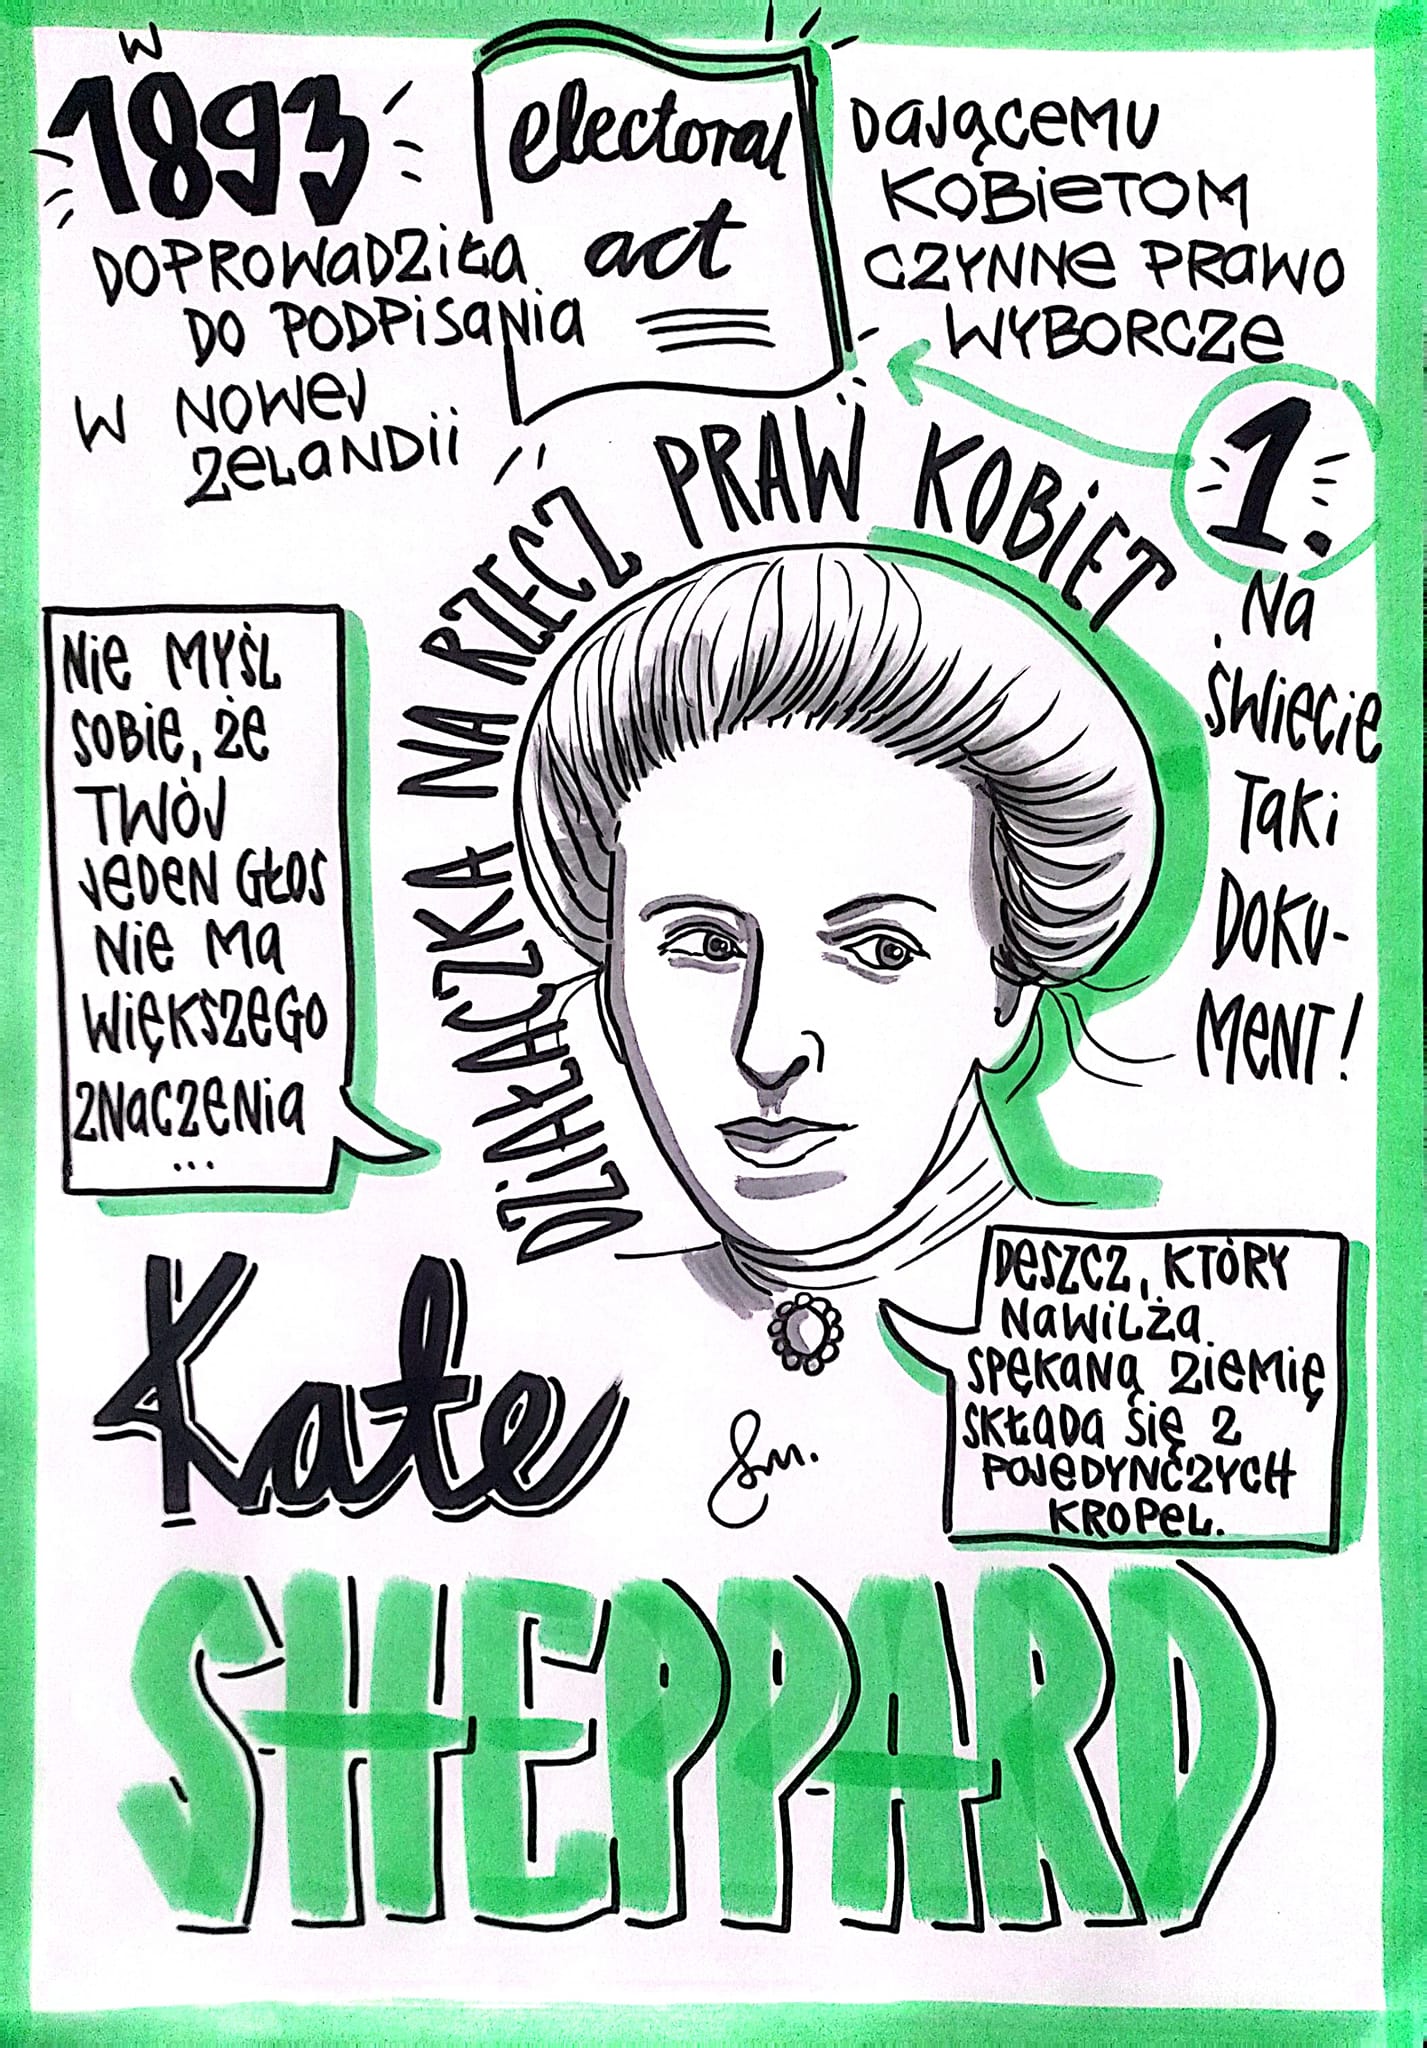 W
1893
DOPROWADZIŁA
DO PODPISANIA
W NOWEJ
ZELANDII
electoral
act
DAJĄCEMU
KOBIETOM
CZYNNE PRAWO
WYBORCZE
1.
NA
ŚWIECIE
TAKI
DOKU-
MENT!
DZIAŁACZKA NA RZECZ PRAW KOBIET
NIE MYŚL
SOBIE, ŻE
TWÓJ
JEDEN GŁOS
NIE MA
WIĘKSZEGO
ZNACZENIA
...
DESZCZ, KTÓRY
NAWILŻA
SPĘKANĄ ZIEMIĘ
SKŁADA SIĘ Z
POJEDYNCZYCH
KROPEL.
Kate
SHEPPARD